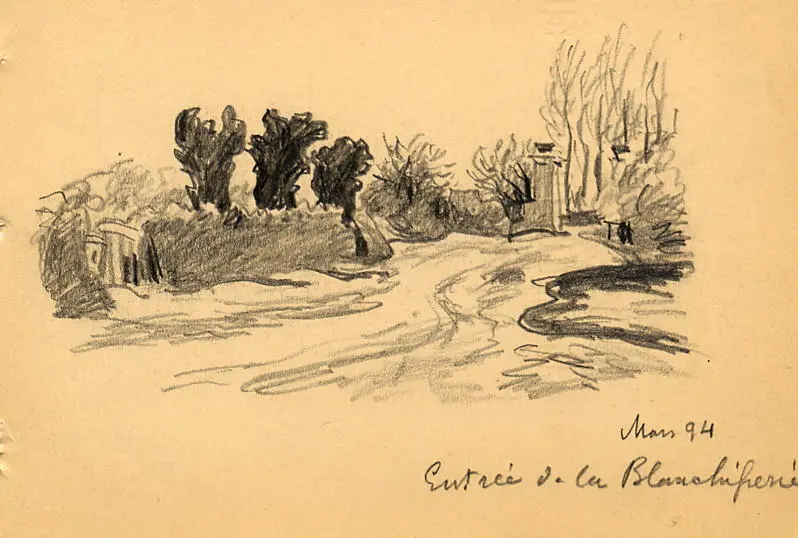 Mars 94
Entrée de la Blanchisserie